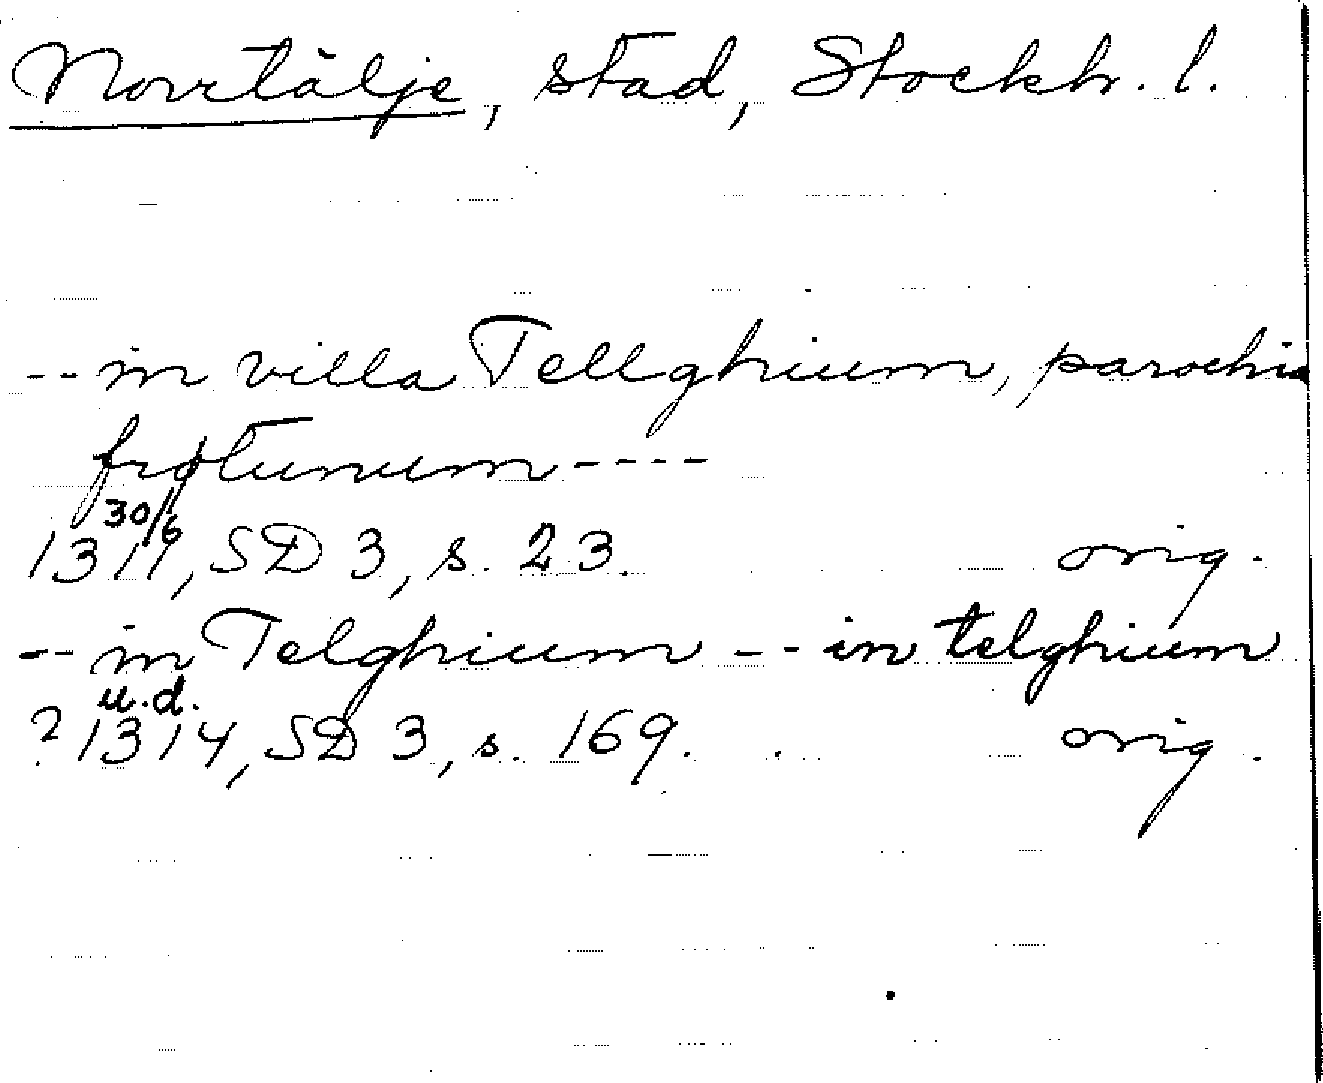 Norrtälje, stad, Stockh. l.
-- in villa Tellghium, parochia
frøtunum ----
30/6
1311, SD 3, s. 23. orig.
-- in Telghium -- in telghium
u.d.
? 1314, SD 3, s. 169. orig.